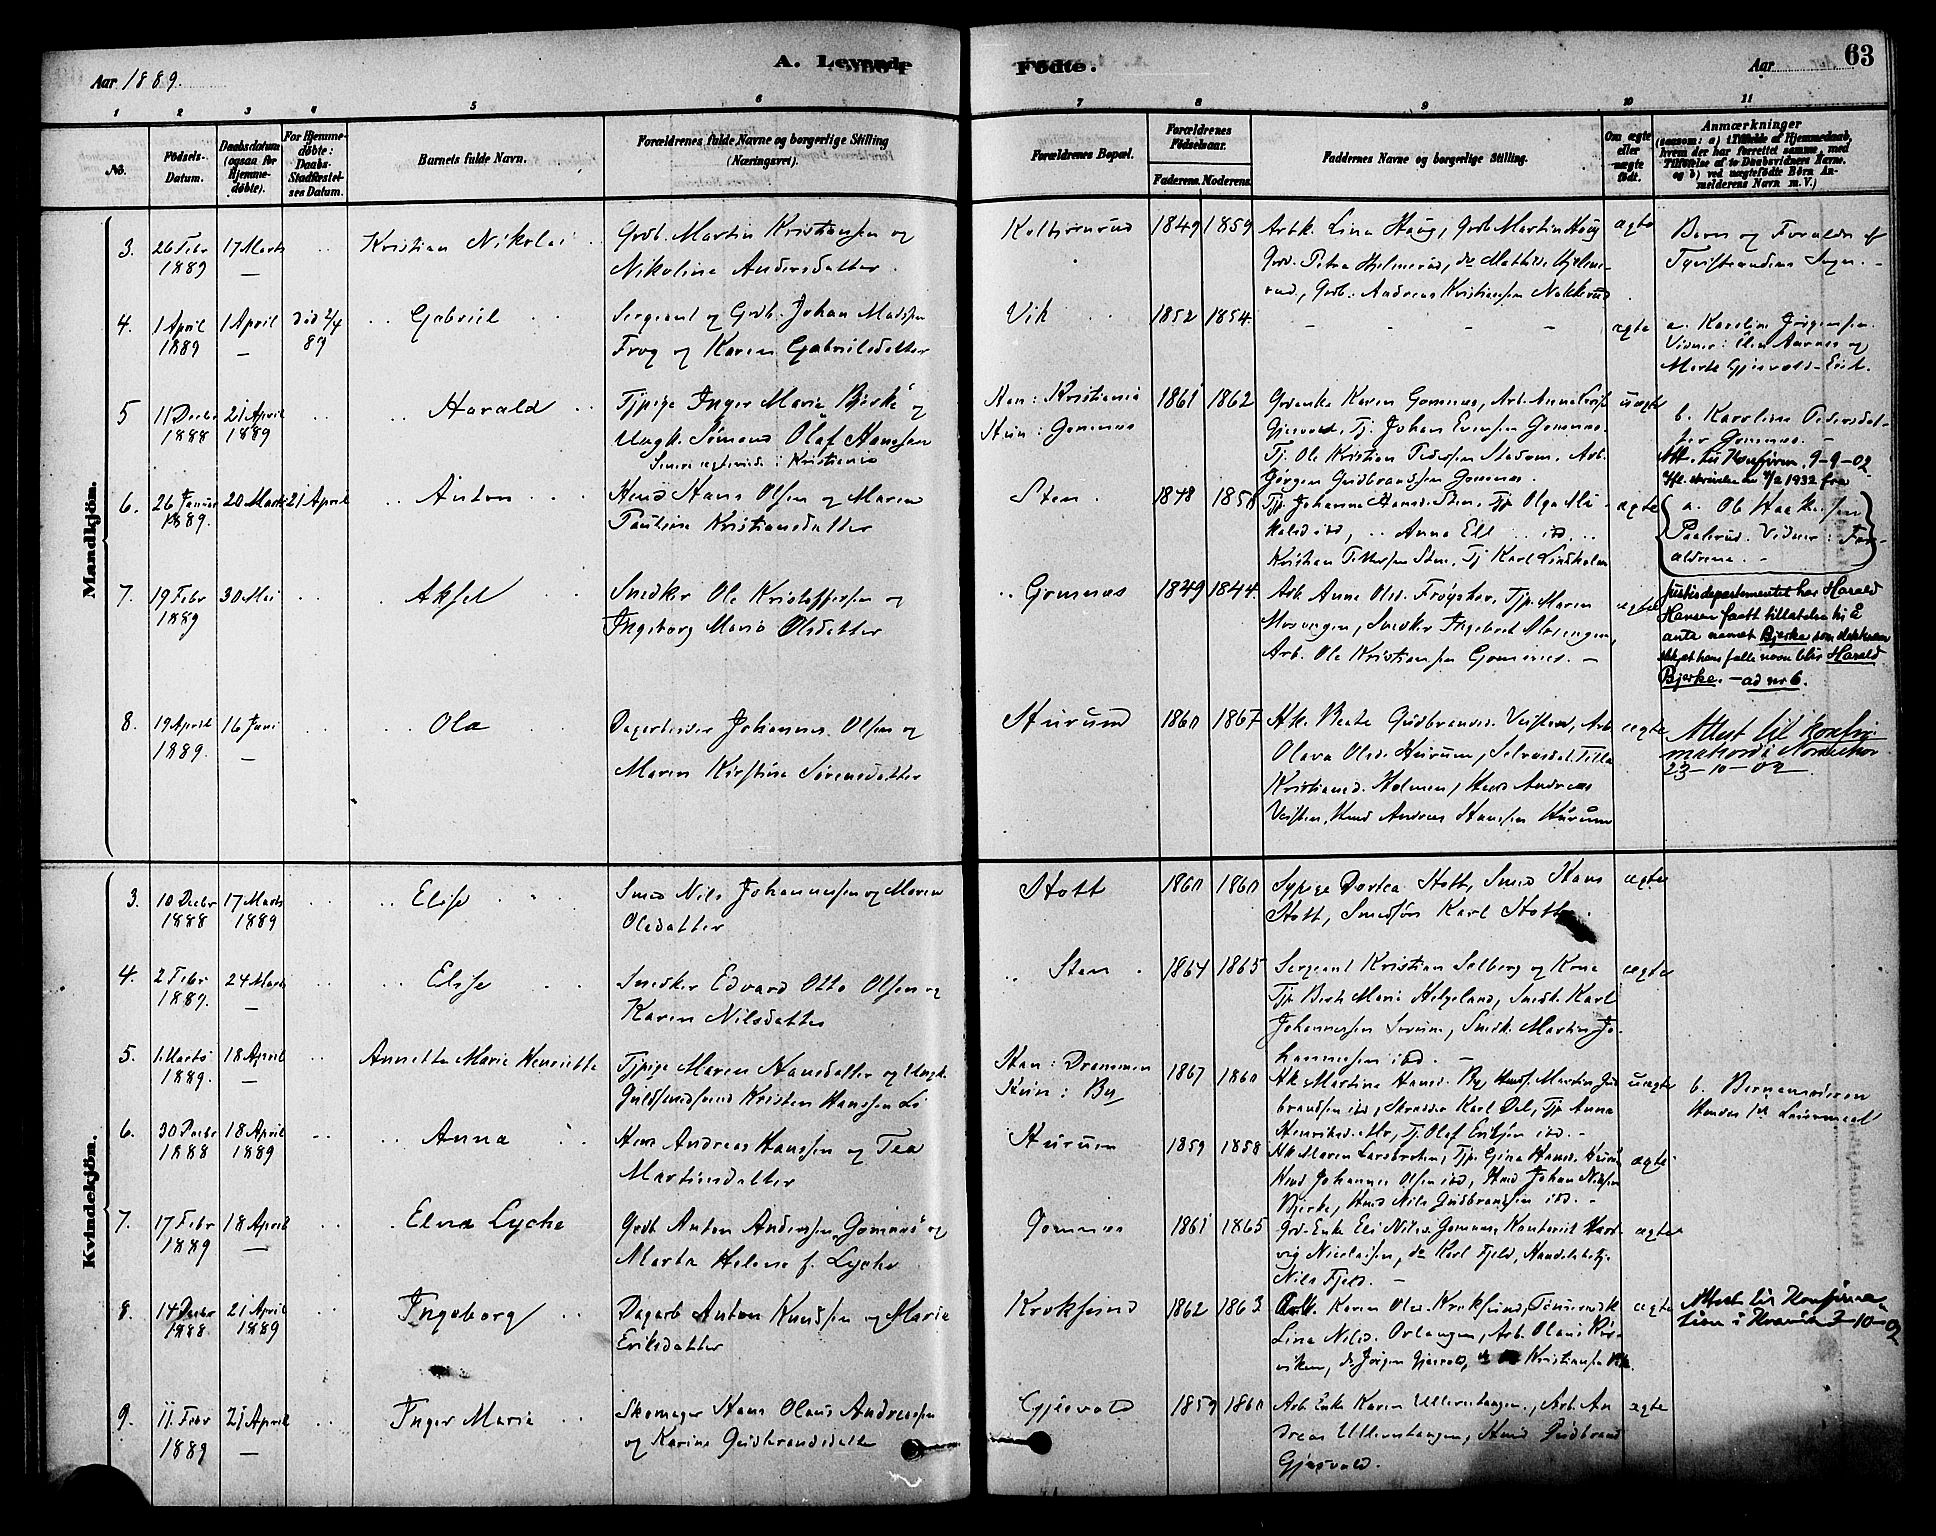 Aar 1889.
A. Levende Fødte.
Aar
63
1 2 3 4 5 6 7 8 9 10 11
No.
Fødsels-Datum.
Daabsdatum (ogsaa for Hjemmedøbte).
For Hjemmedøbte: Daabs-Stadfæstelses Datum.
Barnets fulde Navn.
Forældrenes fulde Navne og borgerlige Stilling (Næringsvei).
Forældrenes Bopæl.
Forældrenes Fødselsaar.
Faderens. Moderens.
Faddernes Navne og borgerlige Stilling.
Om ægte eller uægte født.
Anmærkninger
(saasom: a) i Tilfælde af Hjemmedaab, hvem der har forrettet samme, med Tilføielse af to Daabsvidners Navne, og b) ved uægtefødte Børn Anmelderens Navn m. V.)
Mandkjøn.
3. 26 Febr 1889 17 Marts Kristian Nikolai Grdb. Martin Kristiansen og Nikoline Andersdatter. 1849 1859 Arbk. Lina Haug, Grdb Martin Haug
Grd. Petra Hjelmerud, do Mathilde Hjelmerud, Grdb. Andreas Kristiansen Nakkerud ægte Barn og Forældre af Tyristrandens Sogn.
4. 1 April 1889 1 April død 2/4 89 Gabriel Sergeant og Grdb. Johan Madssen Frog og Karen Gabrielsdatter Vik 1852 1854. ægte a. Karoline Jørgensen. Vidner: Elen Aarnes og Marte Gjesvold-Eiet.
5 11 Decbr 1888 21 April 1889 Harald Tjpige Inger Marie "Bjerke" og Ungk. Sømand Olaf Hanssen
Senere ægteviede i Kristiania
Han: Kristiania Hun: Gomnes 1861 1862 Grdenke Karen Gomnes, Arb. Anne
Gjesvold, Tj. Johan Evensen Gomnes. Tj. Ole Kristian Pedersen Stadum, Arb. Jørgen Gudbrandsen Gomnes. uægte b. Karoline Pedersdatter Gomnes.
Att. til Konfirm. 9-9-02
6. 26 Januar 1889. 20 Marts 21 April Anton Hmd Hans Olsen og Maren Pauline Kristiansdatter Sten 1848 1850 Tjp. Johanne Hansd. Sten, Tjp Olga
ibd, Anna Ell ibd. Kristian Pettersen Sten, Tj Karl Lindholm ægte a. Ole Haakensen Paalerud. Vidner: Forældrene.
7. 19 Febr 1889 30 Mai Aksel Snedker Ole Kristoffersen og Ingeborg Marie Olsdatter Gomnes 1849 1844. Arb. Anne Olsd. Frøyshov, Tjp. Maren
Mosengen, Snedker Ingebret Mosengen, Arb. Ole Kristiansen Gomnes. ægte
Justisdepartementet har Harald
Hansen faatt tillatelse til å
anta navnet Bjerke som slektsnavn
slik at hans fulle navn blir Harald
Bjerke. – ad nr 6.
8. 19 April 1889. 16 Juni Ola Dagarbeider Johannes Olsen og Maren Kirstine Sørensdatter Hurum 1860 1867 Hk. Beate Gudbrandsd. Veisten, Arb
Olava Olsd. Hurum, Tilla Kristiansd. Holmen, Hmd Andreas Veisten, Hmd Andreas Hanssen Hurum ægte Attest til konfirmation i Norderhov 23-10-02
Kvindekjøn.
3. 10 Decbr 1888 17 Marts 1889 Elise Smed Nils Johannessen og Maren Olsdatter Stott 1860 1860 Sypige Dortea Stott, Smed Hans Stott, Karl Stott. ægte
4. 2 Febr 1889. 24 Marts Elise Snedker Edvard Otto Olsen og Karen Nilsdatter Sten 1864 1865 Sergeant Kristian Solberg og Kone
Tjp. Berte Marie Helgeland, Snedk. Karl Johannessen, Snedk. Martin Johannessen ibd. ægte
5. 1 Marts 1889. 18 April Annette Marie Henriette Tjpige Maren Hansdatter og Ungk. Guldsmedsvend Kristen Hanssen Li Han: Drammen Hun: By 1867 1860 Hk. Martine Hansd. By, Hmd. Martin Gudbrandsen ibd, Skrædder Karl Dal, Tjp Anna Henriksdatter, Tj. Olaf Eriksen ibd. uægte b. Barnemoderen Hendes 1st Leiermaal
6. 30 Decbr 1888 18 April 1889 Anna Hmd Andreas Hanssen og Tea Martinsdatter Hurum 1859 1858 Hk Maren Larsbraaten, Tjp. Gina Hansd. Hurum Hmd Johannes Olsen ibd, Hmd Johan Nilssen Bjerke, Hmd Nils Gudbrandsen ibd. ægte
7. 17 Febr 1889 18 April Elna Lyche Grdb. Anton Anderssen "Gomnes" og Marta Helene f. Lyche Gomnes 1861 1865 Grd-Enke Eli Nilsd. Gomnes, Kontorist Hardvig Nicolaisen, do Karl Fjeld, Handelsbetj. Nils Fjeld. ægte
8. 14 Decbr 1888 21 April 1889 Ingeborg Dagarb Anton Knudssen og Marie Eriksdatter Kroksund 1862 1863. Arb. Karen Olsd. Kroksund,
Lina Nilsd. Orlangen, Arb. Olaus, do Jørgen Gjesvold, Kristiansen ægte Attest til Konfirmation i Hovi 3-10-02
9. 11. Febr 1889 21 April Inger Marie Skomager Hans Olaus Andreassen og Karine Gudbrandsdatter Gjesvold 1859 1860 Arb Enke Karen Ullernhaugen, Arb. Andreas Ullernhaugen, Hmd Gudbrand Gjesvold. ægte